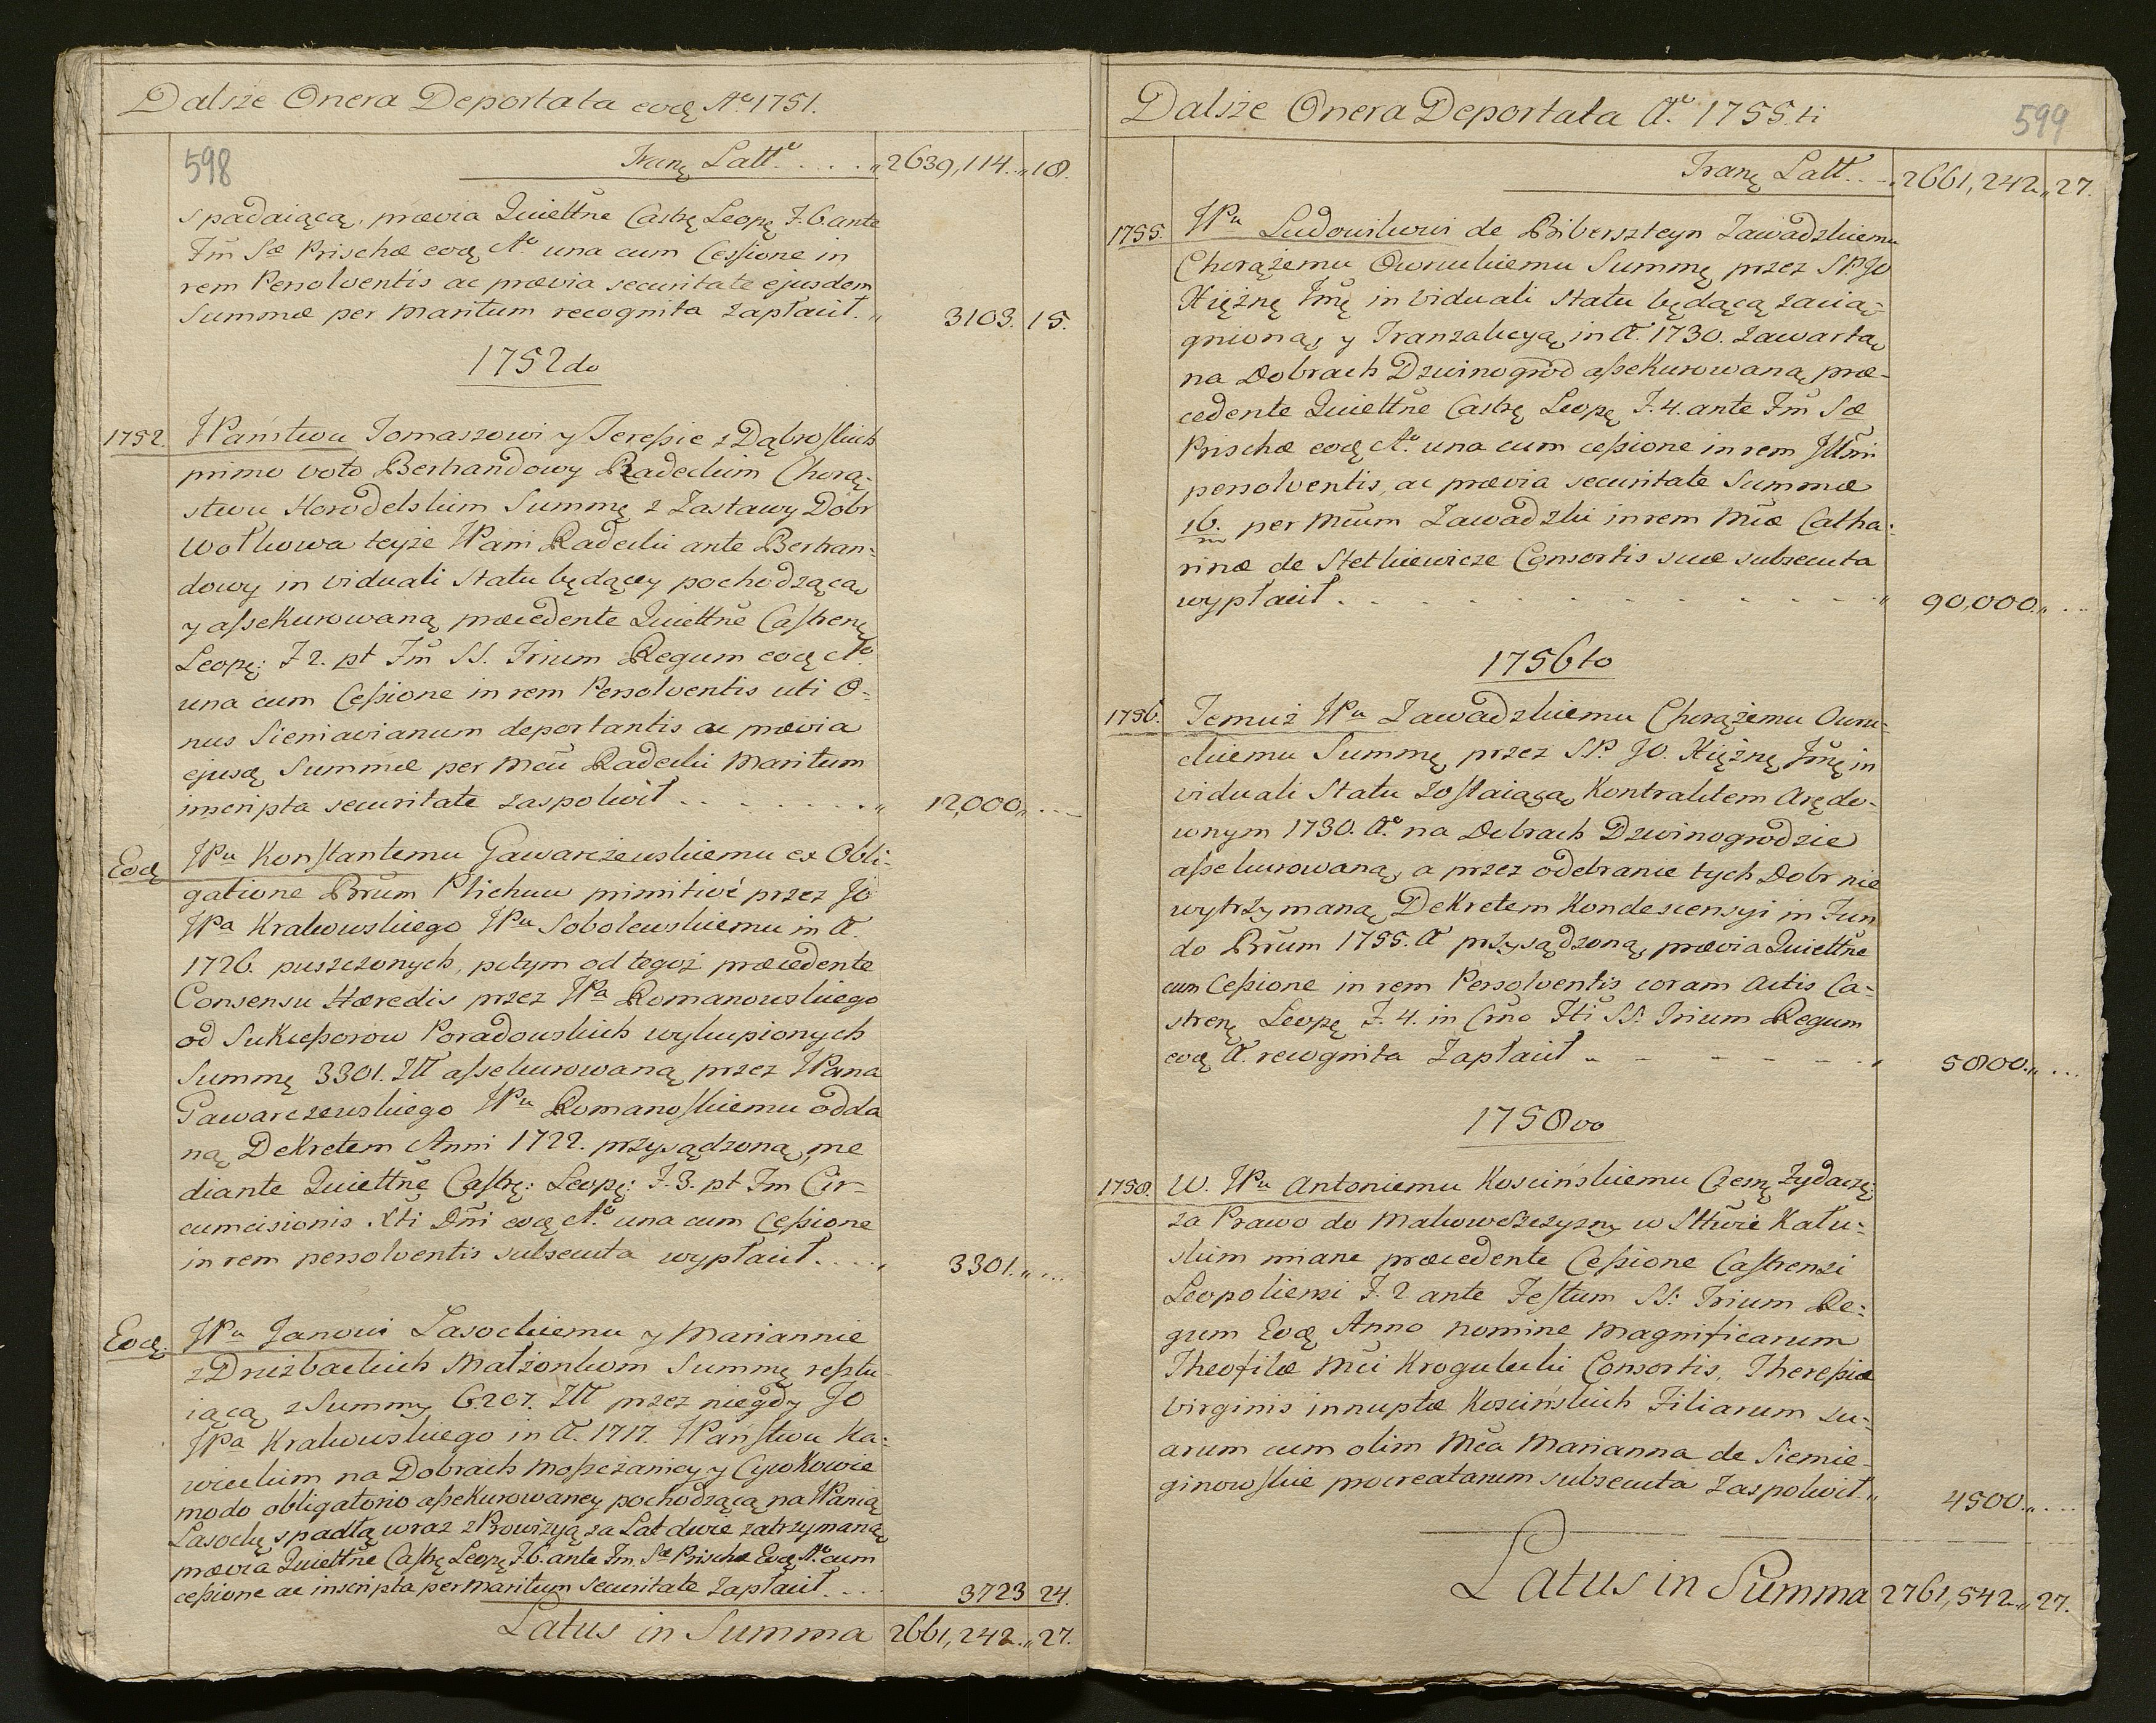 Dalsze Onera Deportata eodę Aº 1751.
598
Tranę Lattº. . . . . „2639,114. „18.
spadaiącą, prævia Quiettñe Castrę Leopę F. 6. ante
Fm̃ Sæ Prischæ eodę Aº una cum Cessione in
rem Persolventis ac prævia securitate ejusdem
Summæ per Maritum recognita zapłacił. „ 3103. 15.
1752do
1752. JPaństwu Tomaszowi y Teressie z Dąbroskich
primo voto Bertrandowy Radeckim Chorą-
stwu Horodelskim Summę z Zastawy Dobr
Wołkowa teyże JPani Radecki ante Bertran-
dowy in viduali Statu będącey pochodzącą
y assekurowaną, præcedente Quiettñe Castrenę
Leopę: F 2. pt Fm̃ SS. Trium Regum eodę Aº.
una cum Cessione in rem Persolventis uti O-
nus Sieniavianum deportantis ac prævia
ejusdę Summæ per Mcũ Radecki Maritum
inscripta securitate zaspokoił . . . . . . . „ 12,000„ . . .
Eodę JPu Konstantemu Gawarzewskiemu ex Obli-
gatione Brum Plichuw primitivè przez JO
JPa Krakowskiego JPu Sobolewskiemu in Aº.
1726. puszczonych, potym od tegoż præcedente
Consensu Hæredis przez JPa Romanowskiego
od Sukcessorow Poradowskich wykupionych
Summę 3301. Złł assekurowaną przez JPana
Gawarczewskiego JPu Romanoskiemu odda
ną, Dekretem Anni 1722. przysądzoną, me
diante Quiettñe Castrę: Leopę: F. 3. pt Fm Cir-
cumcisionis Xti Dñi eodę Aº. una cum Cessione
in rem persolventis subsecuta wypłacił . . . „ 3301. „ . . .
Eodę. JPu Janowi Lasockiemu y Mariannie
z Drużbackich Małżonkom Summę resztu-
iącą z Summy 6207. Złł przez niegdy JO
JPa Krakowskiego in Aº. 1717. JPaństwu Ka-
wieckim na Dobrach Moszczanicy y Cywkowie
modo obligatorio assekurowaney pochodzącą na JPanią
Lasocką spadłą wraz z Prowizyą za Lat dwie zatrzymaną
prævia Quiettñe Castrę Leopę F. 6. ante Fm. Sæ Prischæ Eodę Aº. cum
cessione ac inscripta per maritum securitate zapłacił. . . 3723 24.
Latus in Summa 2661,242. „ 27.
Dalsze Onera Deportata Aº. 1755.ti
599
Tranę Latt. . . „2661,242„ 27.
1755. JPu Ludowikowi de Biberszteyn Zawadzkiemu
Chorążemu Owruckiemu Summę przez SP. JO
Xiężnę Jmę in viduali Statu będącą zacią-
gnioną, y Tranzakcyą in Aº. 1730. zawartą
na Dobrach Dzwinogrod assekurowaną, præ-
cedente Quiettñe Castrę Leopę F. 4. ante Fm̃ Sæ
Prischæ eodę Aº. una cum cessione in rem Jllsm̃i
persolventis, ac prævia securitate Summæ
16. per Mcum Zawadzki in rem Mcæ Catha-
m
rinæ de Stetkiewicze Consortis suæ subsecuta
wypłacił . . . . . . . . . . . . . „ 90,000„ . . .
1756to
1756. Temuż JPu Zawadzkiemu Chorążemu Owru-
ckiemu Summę, przez SP. JO. Xiężnę Jmę in
viduali Statu zostaiącą, Kontraktem Arędo-
wnym 1730. Aº. na Dobrach Dzwinogrodzie
assekurowaną, a przez odebranie tych Dobr nie
wytrzymaną, Dekretem Kondescensyi in Fun
do Brum 1755. Aº przysądzoną, prævia Quiettñe
cum Cessione in rem Persolventis coram Actis Ca-
strenę Leopę F. 4. in Crño Fti SS. Trium Regum
eodę Aº. recognita zapłacił . . . . . . . 5800„ . . .
1758vo
1758. W. JPu Antoniemu Koscińskiemu Czesnę Zydaczę:
za Prawo do Makowszczyzny w Sttwie Kału-
skim miane præcedente Cessione Castrensi
Leopoliensi F. 2 ante Festum SS: Trium Re-
gum Eodę Anno nomine Magnificarum
Theofilæ Mci Krogulecki Consortis, Theressiæ
Virginis innuptæ Koscińskich Filiarum su-
arum cum olim Mca Marianna de Siemie-
ginowskie procreatarum subsecuta zaspokoił. „ 4500„ . . .
Latus in Summa 2761,542„ 27.